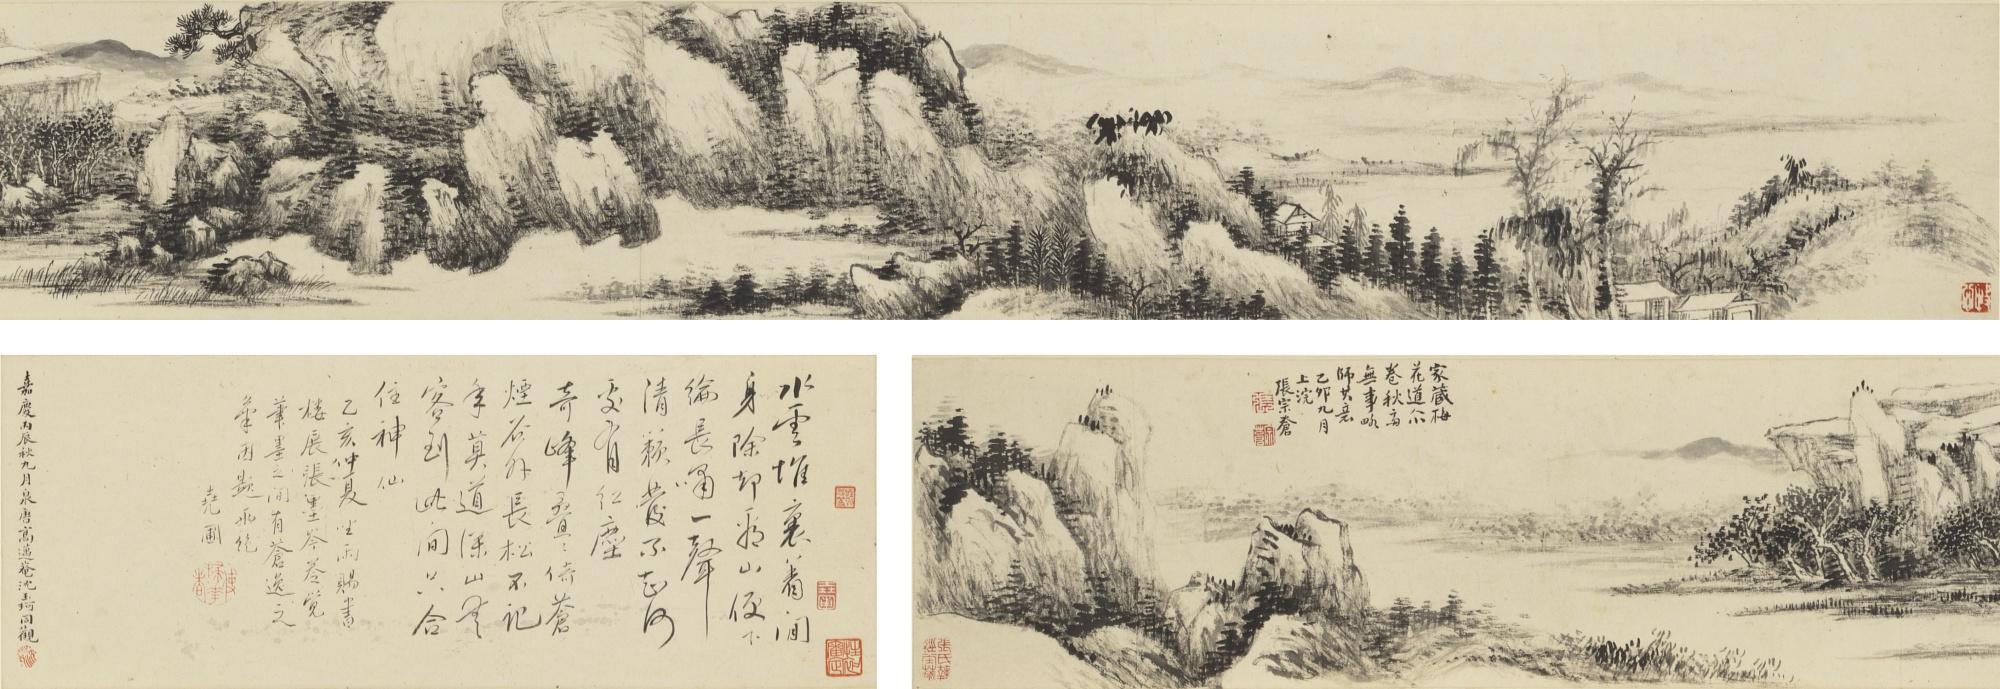 家藏梅
花道人
卷秋窗
無事略
師其意
乙卯九月
上浣
張宗蒼
水雲堆裏着閒
身除却看山便下
綸長嘯一聲
清籟發不知何
處有紅塵
奇峰疊疊倚蒼
煙谷外長松不記
年莫道深山無
客到此間只合
住神仙
乙亥仲夏坐雨賜書
樓展張墨岑卷覺
筆墨之間有蒼逸之
氣因題兩絕
堯圃
嘉慶丙辰秋九月泉唐高邁菴沈同觀